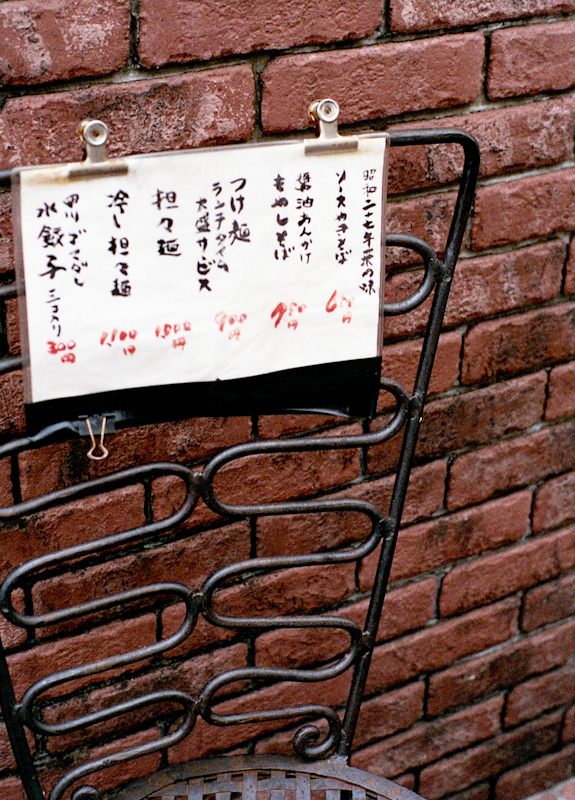 昭和二十七年菜の味
ソースやきそば
600円
醤油あんかけ
もやしそば
750円
つけ麺
ランチタイム
大盛サービス
900円
担々麺
1,000円
冷し担々麺
1,100円
四川ゴマダレ
水餃子 三コ入り
300円